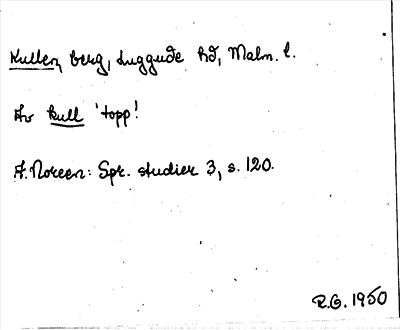 Kullen, berg, Luggude hd, Malm. l.
Av kull 'topp'.
A. Noreen: Spr. studier 3, s. 120.
R.G. 1950